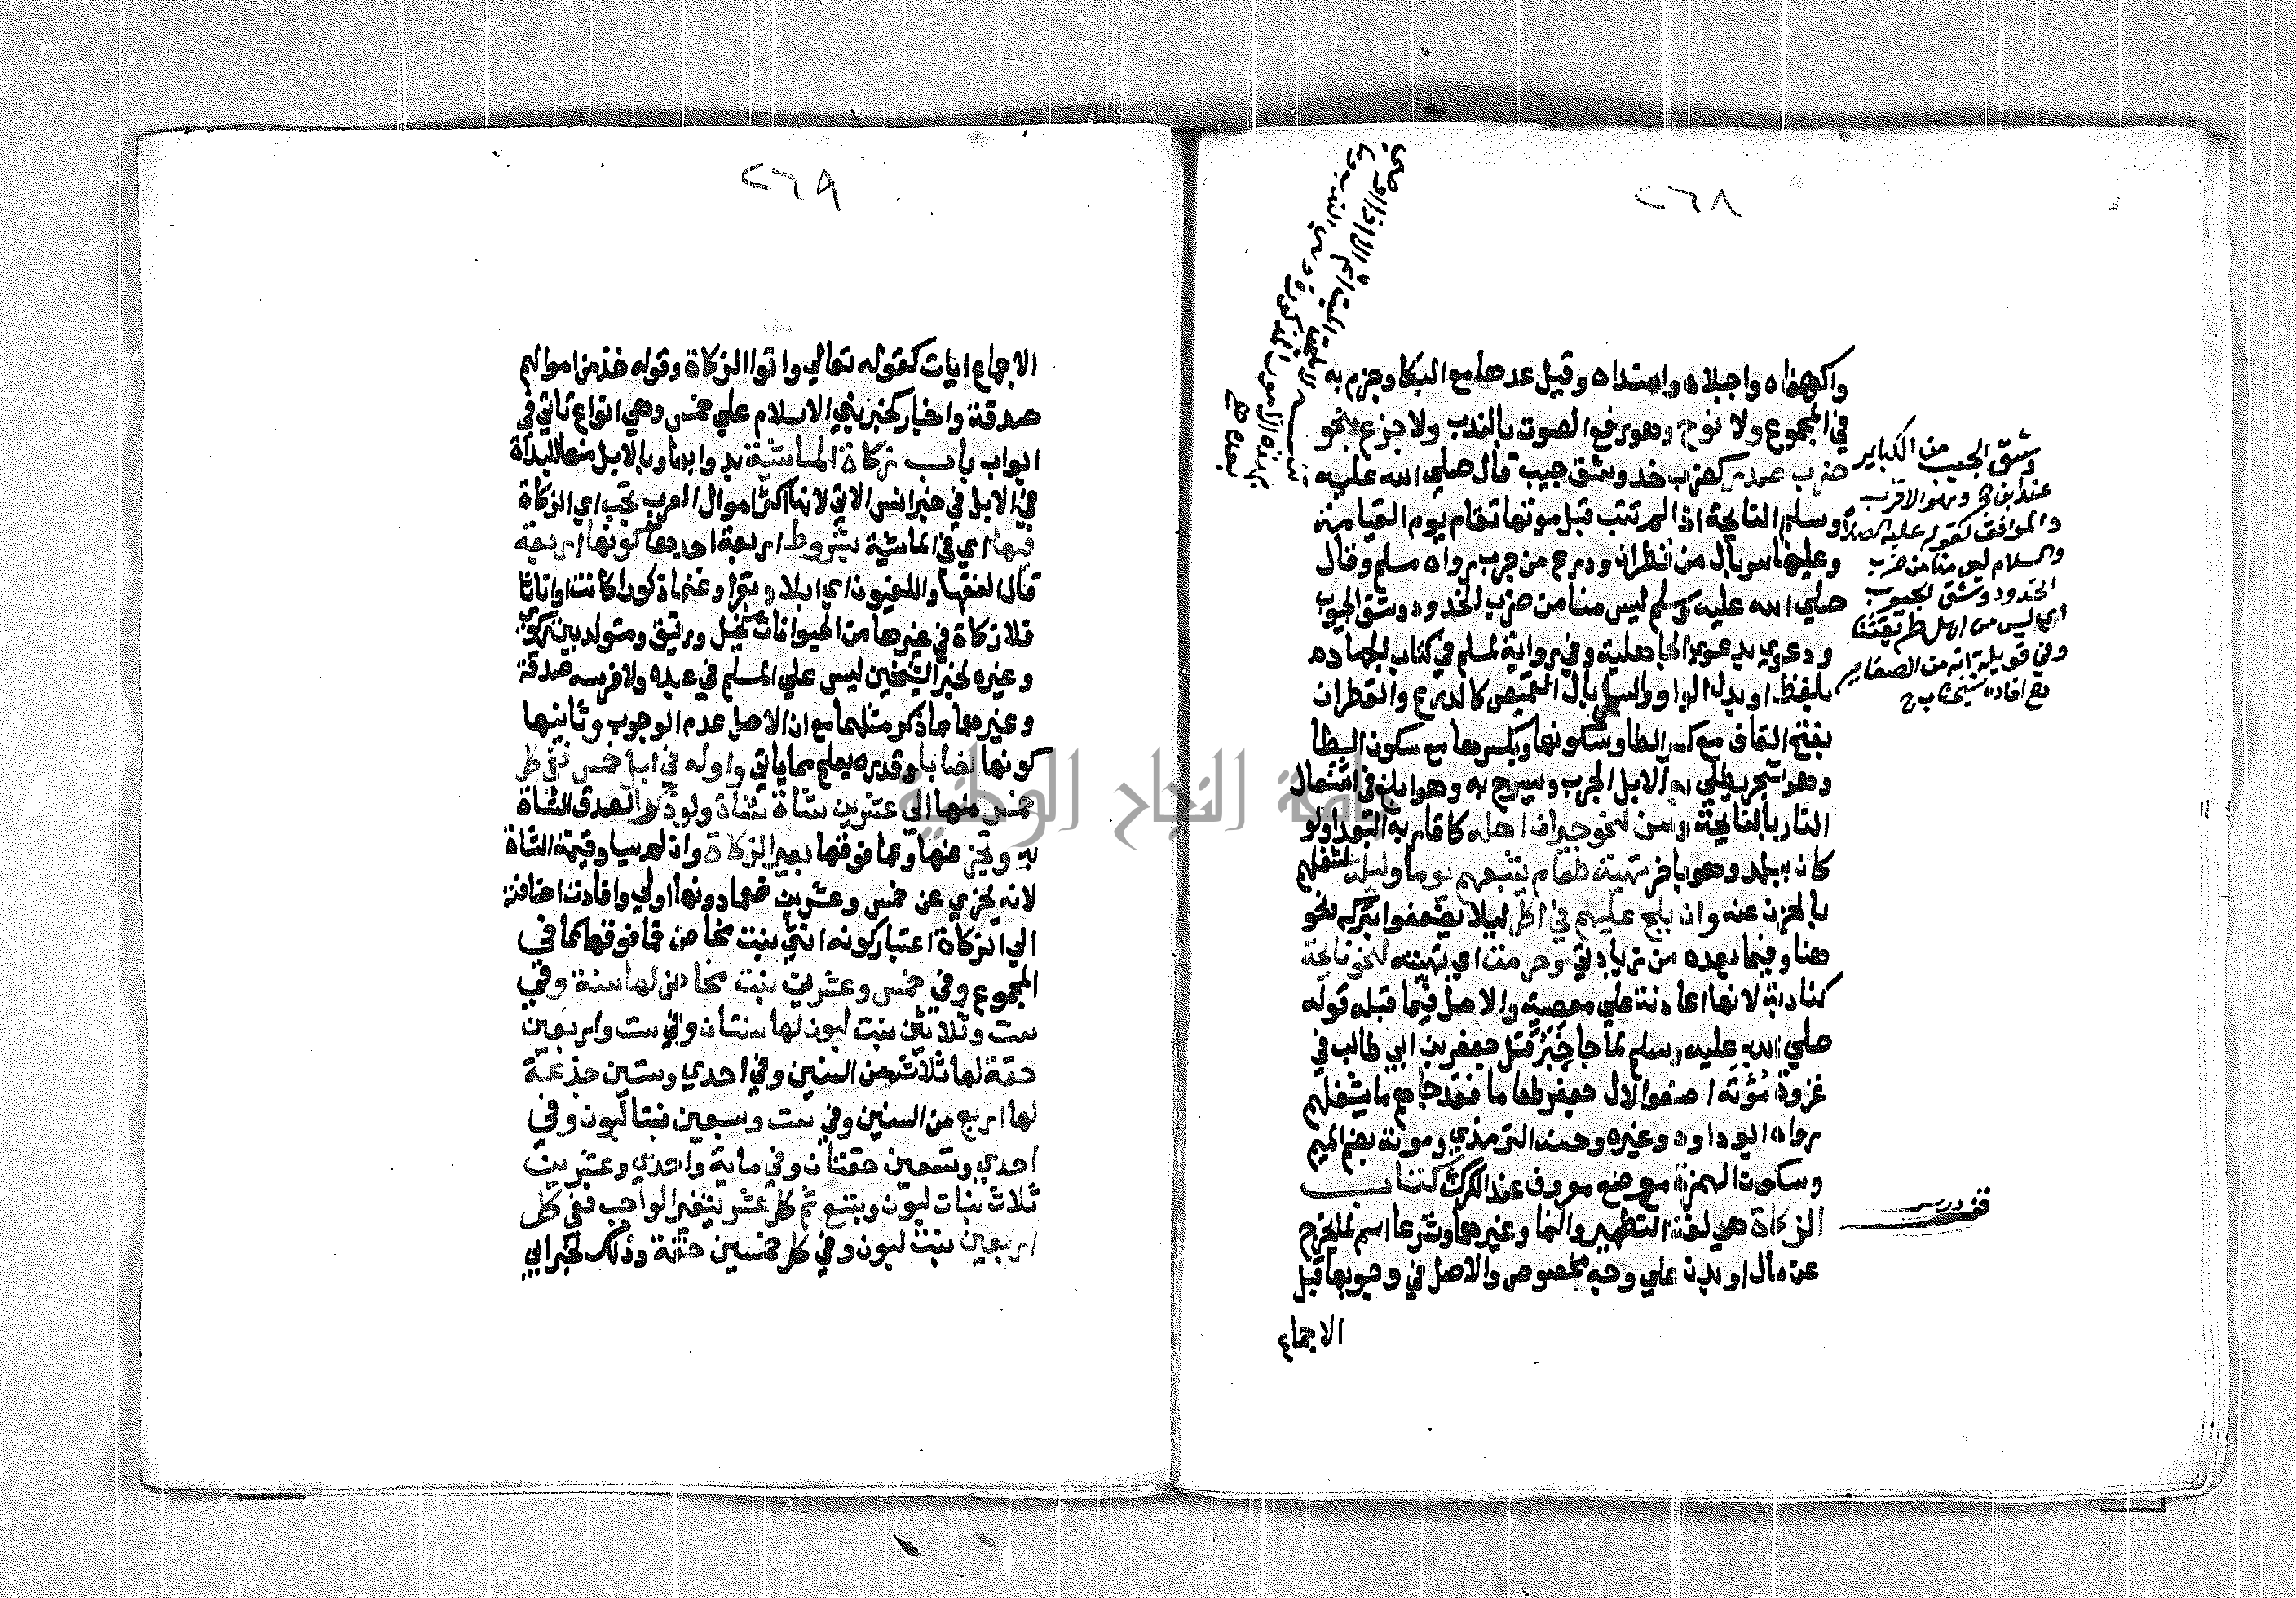 ٢٦٨
واكهفاه واجبلاه واسنداه وقيل عدها مع البكا وجزم به
في المجموع ولا نوح وهو رفع الصوت بالندب ولا جزع بنحو
ضرب صدر كضرب خد وشق جيب قال صلي الله عليه
وسلم النايحة اذا لم تتب قبل موتها تقام يوم القيامة
وعليها سربال من قطران ودرع من جرب رواه مسلم وقال
صلي الله عليه وسلم ليس منا من ضرب الخدود وشق الجيوب
ودعوي بدعوي الجاهلية وفي رواية لمسلم في كتاب الجهاد
بلفظ او بدل الواو والسربال القميص كالدرع والقطران
بفتح القاف مع كسر الطا وسكونها وبكسرها مع سكون الطا
وهو شجر يطلي به الابل الجرب ويسرج به وهو ابلغ في اشتعال
النار بالنايحة وسن لنحو جيران اهله كاقاربه البعدا ولو
كان ببلد وهو باخر تهيئة طعام يشبعهم يوما وليلة لشغلهم
بالحزن عنه وان يلح عليهم في اكل ليلا يضعفوا بتركه نحو
هنا وفيما بعده من زيادتي وحرمت اي تهيئته لنحو نايحة
كنادبة لانها اعانة علي معصية والاصل فيما قبله قوله
صلي الله عليه وسلم لما جا خبر قتل جعفر بن ابي طالب في
غزوة مؤتة اصنعوا لال جعفر طعاما فقد جاهم ما يشغلهم
رواه ابو داود وغيره وحسنه الترمذي ومؤتة بضم الميم
وسكون الهمزة موضع معروف عند الكرك كتاب
الزكاة هي لغة التطهير والنما وغيرهما وشرعا اسم لما يخرج
عن مال او بدن علي وجه مخصوص والاصل في وجوبها قبل
الاجماع
وشق الجيب من الكباير
عند ابن حج وهو الاقرب
والموافق لقوله عليه الصلاة
والسلام ليس منا من ضرب
الخدود وشق الجيوب
اي ليس من اهل طريقتنا
وفي قويلة انه من الصغاير
٢٦٩
الاجماع ايات كقوله تعالي واتوا الزكاة وقوله خذ من اموالهم
صدقة واخبار كخبر بني الاسلام علي خمس وهي انواع تاتي في
ابواب باب زكاة الماشية بدوا بها وبالابل منها للبداة
في الابل في خبر انس الاتي لانها اكثر اموال العرب تجب اي الزكاة
فيها اي في الماشية بشروط اربعة احدها كونها نعما
قال الفقها واللغويون اي ابلا وبقرا وغنما ذكورا كانت او اناثا
فلا زكاة في غيرها من الحيوانات كخيل ورقيق ومتولد بين زكوي
وغيره لخبر الشيخين ليس علي المسلم في عبده ولا فرسه صدقة
وغيرهما مما ذكر مثلهما مع ان الاصل عدم الوجوب وثانيها
كونها نصابا وقدره يعلم مما ياتي واوله في ابل خمس ففي كل
خمس منها الي عشرين شاة شاة ولو ذكرا لصدق الشاة
به ويجزي عنها وعما فوقها بعير الزكاة وان لم يساو قيمة الشاة
لانه يجزي عن خمس وعشرين فعما دونها اولي وافادت اضافته
الي الزكاة اعتبار كونه انثي بنت مخاض فما فوقها كما في
المجموع وفي خمس وعشرين بنت مخاض لها سنة وفي
ست وثلاثين بنت لبون لها سنتان وفي ست واربعين
حقة لها ثلاث من السنين وفي احدي وستين جذعة
لها اربع من السنين وفي ست وسبعين بنتا لبون وفي
احدي وتسعين حقتان وفي ماية واحدي وعشرين
ثلاث بنات لبون وبتسع ثم كل عشر يتغير الواجب ففي كل
اربعين بنت لبون وفي كل خمسين حقة وذلك لخبر ابي
جامعة النجاح الوطنية